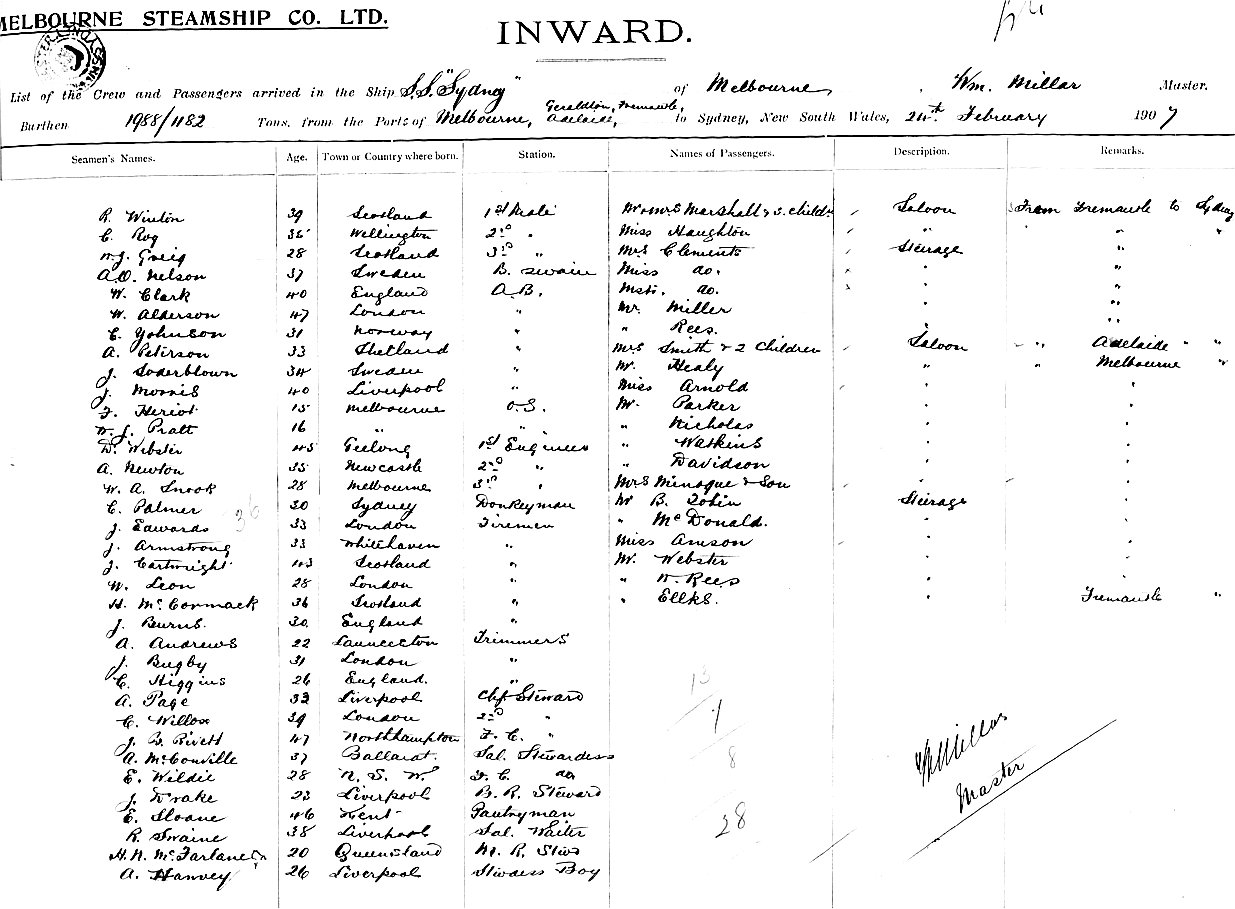 MELBOURNE STEAMSHIP CO. LTD.
INWARD.
List of the Crew and Passengers arrived in the Ship S.S. "Sydney" of Melbourne, Wm. Millar Master.
Burthen 1988/1182 Tons, from the Ports of Melbourne, Geraldton, Fremantle, Adelaide, to Sydney, New South Wales, 24th February 1907
Seamen's Names. Age. Town or Country where born. Station. Names of Passengers. Description. Remarks.
R. Winton 39 Scotland 1st Mate Mr & Mrs Marshall & 3 childn Saloon From Fremantle to Sydney
C. Roy 36 Wellington 2nd " Miss Haughton " " "
W. J. Greig 28 Scotland 3rd " Mrs Clements Steerage "
A. O. Nelson 37 Sweden B. Swain Miss do. " "
W. Clark 40 England A.B. Mstr. do. " "
W. Alderson 47 London " Mr. Miller " "
C. Yohnson 31 Norway " " Rees. " "
A. Peterson 33 Shetland " Mrs Smith & 2 Children Saloon " Adelaide " "
J. Soderblown 34 Sweden " Mr. Healy " " Melbourne "
J. Morris 40 Liverpool " Miss Arnold " "
F. Heriot 15 Melbourne O.S. Mr. Parker " "
W. J. Pratt 16 " " " Nicholas " "
D. Webster 45 Geelong 1st Engineer " Watkins " "
A. Newton 35 Newcastle 2nd " " Davidson " "
W. A. Snook 28 Melbourne 3rd " Mrs Minogue & Son " "
C. Palmer 30 Sydney Donkeyman Mr B. Tobin Steerage "
J. Edwards 33 London Firemen " McDonald. " "
J. Armstrong 33 Whitehaven " Miss Amson " "
J. Cartwright 43 Scotland " Mr. Webster " "
W. Leon 28 London " " W. Rees " "
H. McCormack 36 Scotland " " Ellks. " Fremantle "
J. Burns. 30 England "
A. Andrews 22 Launceston Trimmers
J. Bugby 31 London "
C. Higgins 26 England. "
A. Page 32 Liverpool Chf Steward
C. Willox 39 London 2nd "
J. B. Rivett 47 Northampton F. C. "
A. McConville 37 Ballarat. Sal. Stewardess
E. Wildie 28 N. S. W. F. C. do
J. Drake 23 Liverpool B. R. Steward
E. Sloane 46 Kent Pantryman
R. Swaine 38 Liverpool Sal. Waiter
H. N. McFarlane 20 Queensland M. R. Stwd
A. Hanvey 26 Liverpool Stwdess Boy
36
13
7
8
28
W Millar
Master